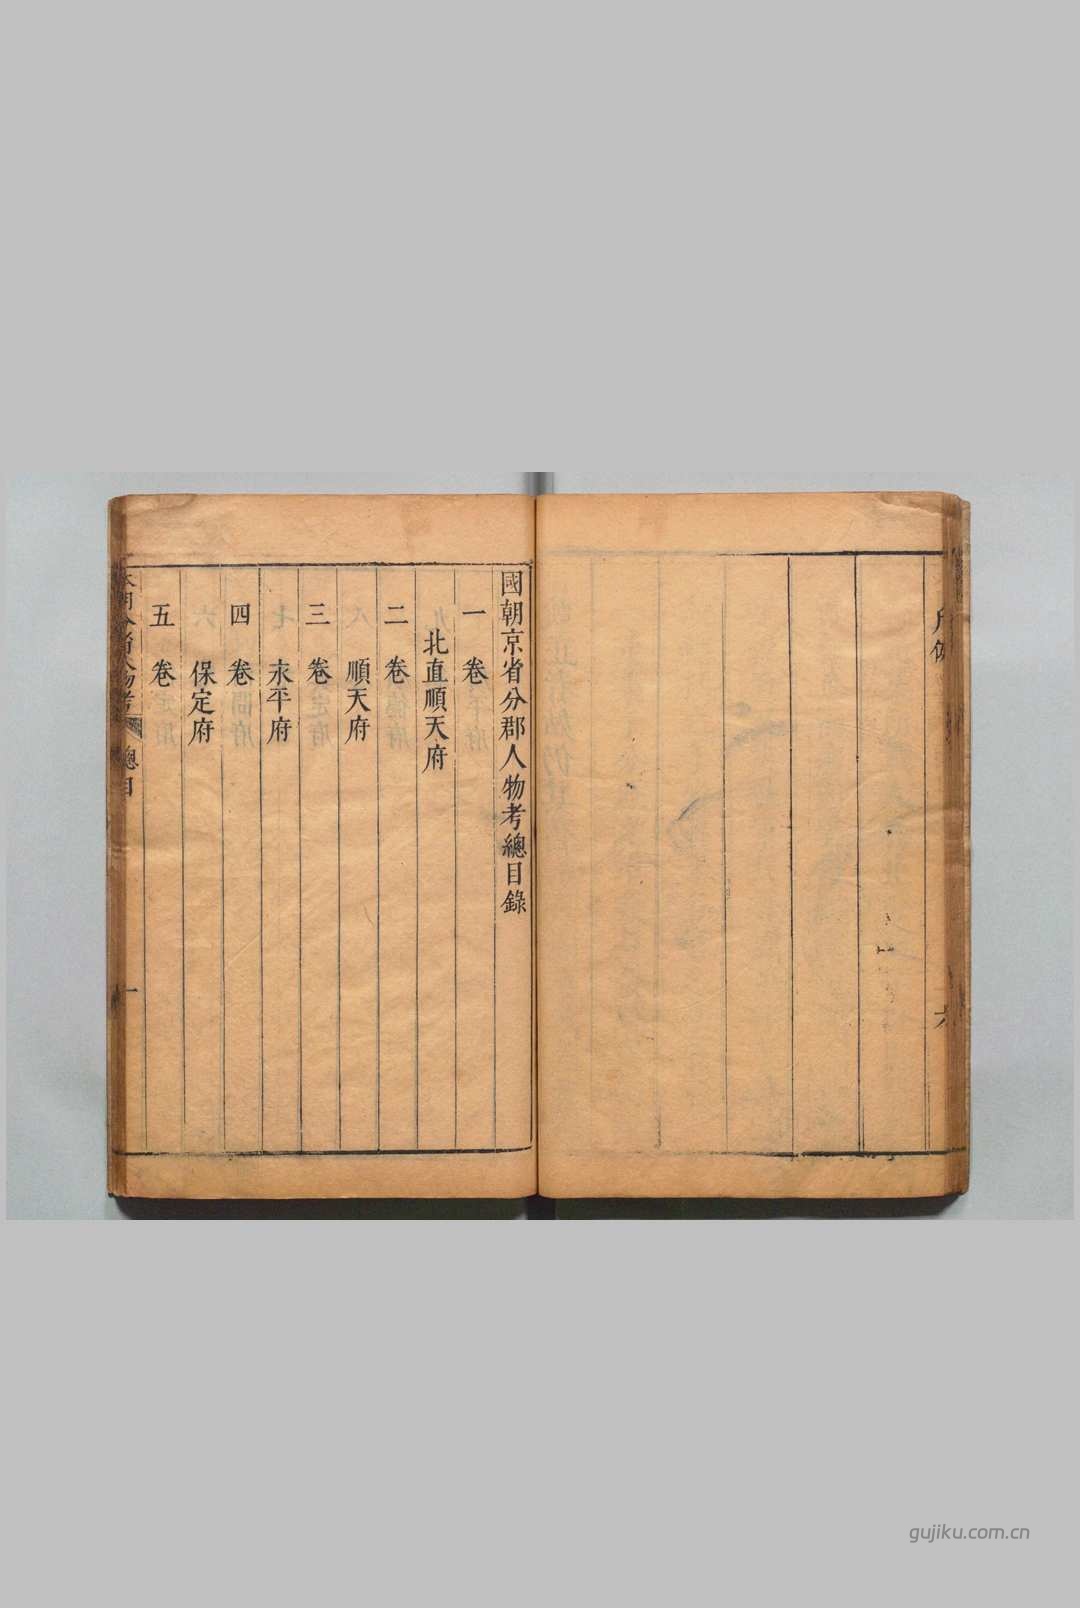 國朝京省分郡人物考總目錄
一卷
北直順天府
二卷
順天府
三卷
永平府
四卷
保定府
五卷
總目
一
gujiku.com.cn